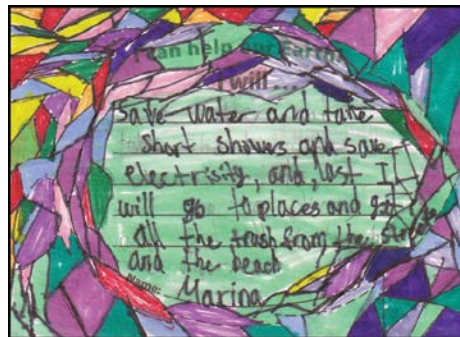 I can help our Earth.
I will...
Save water and take
short showers and save
electrisity, and, last I
will go to places and get
all the trash from the street
and the beach
Name: Marina